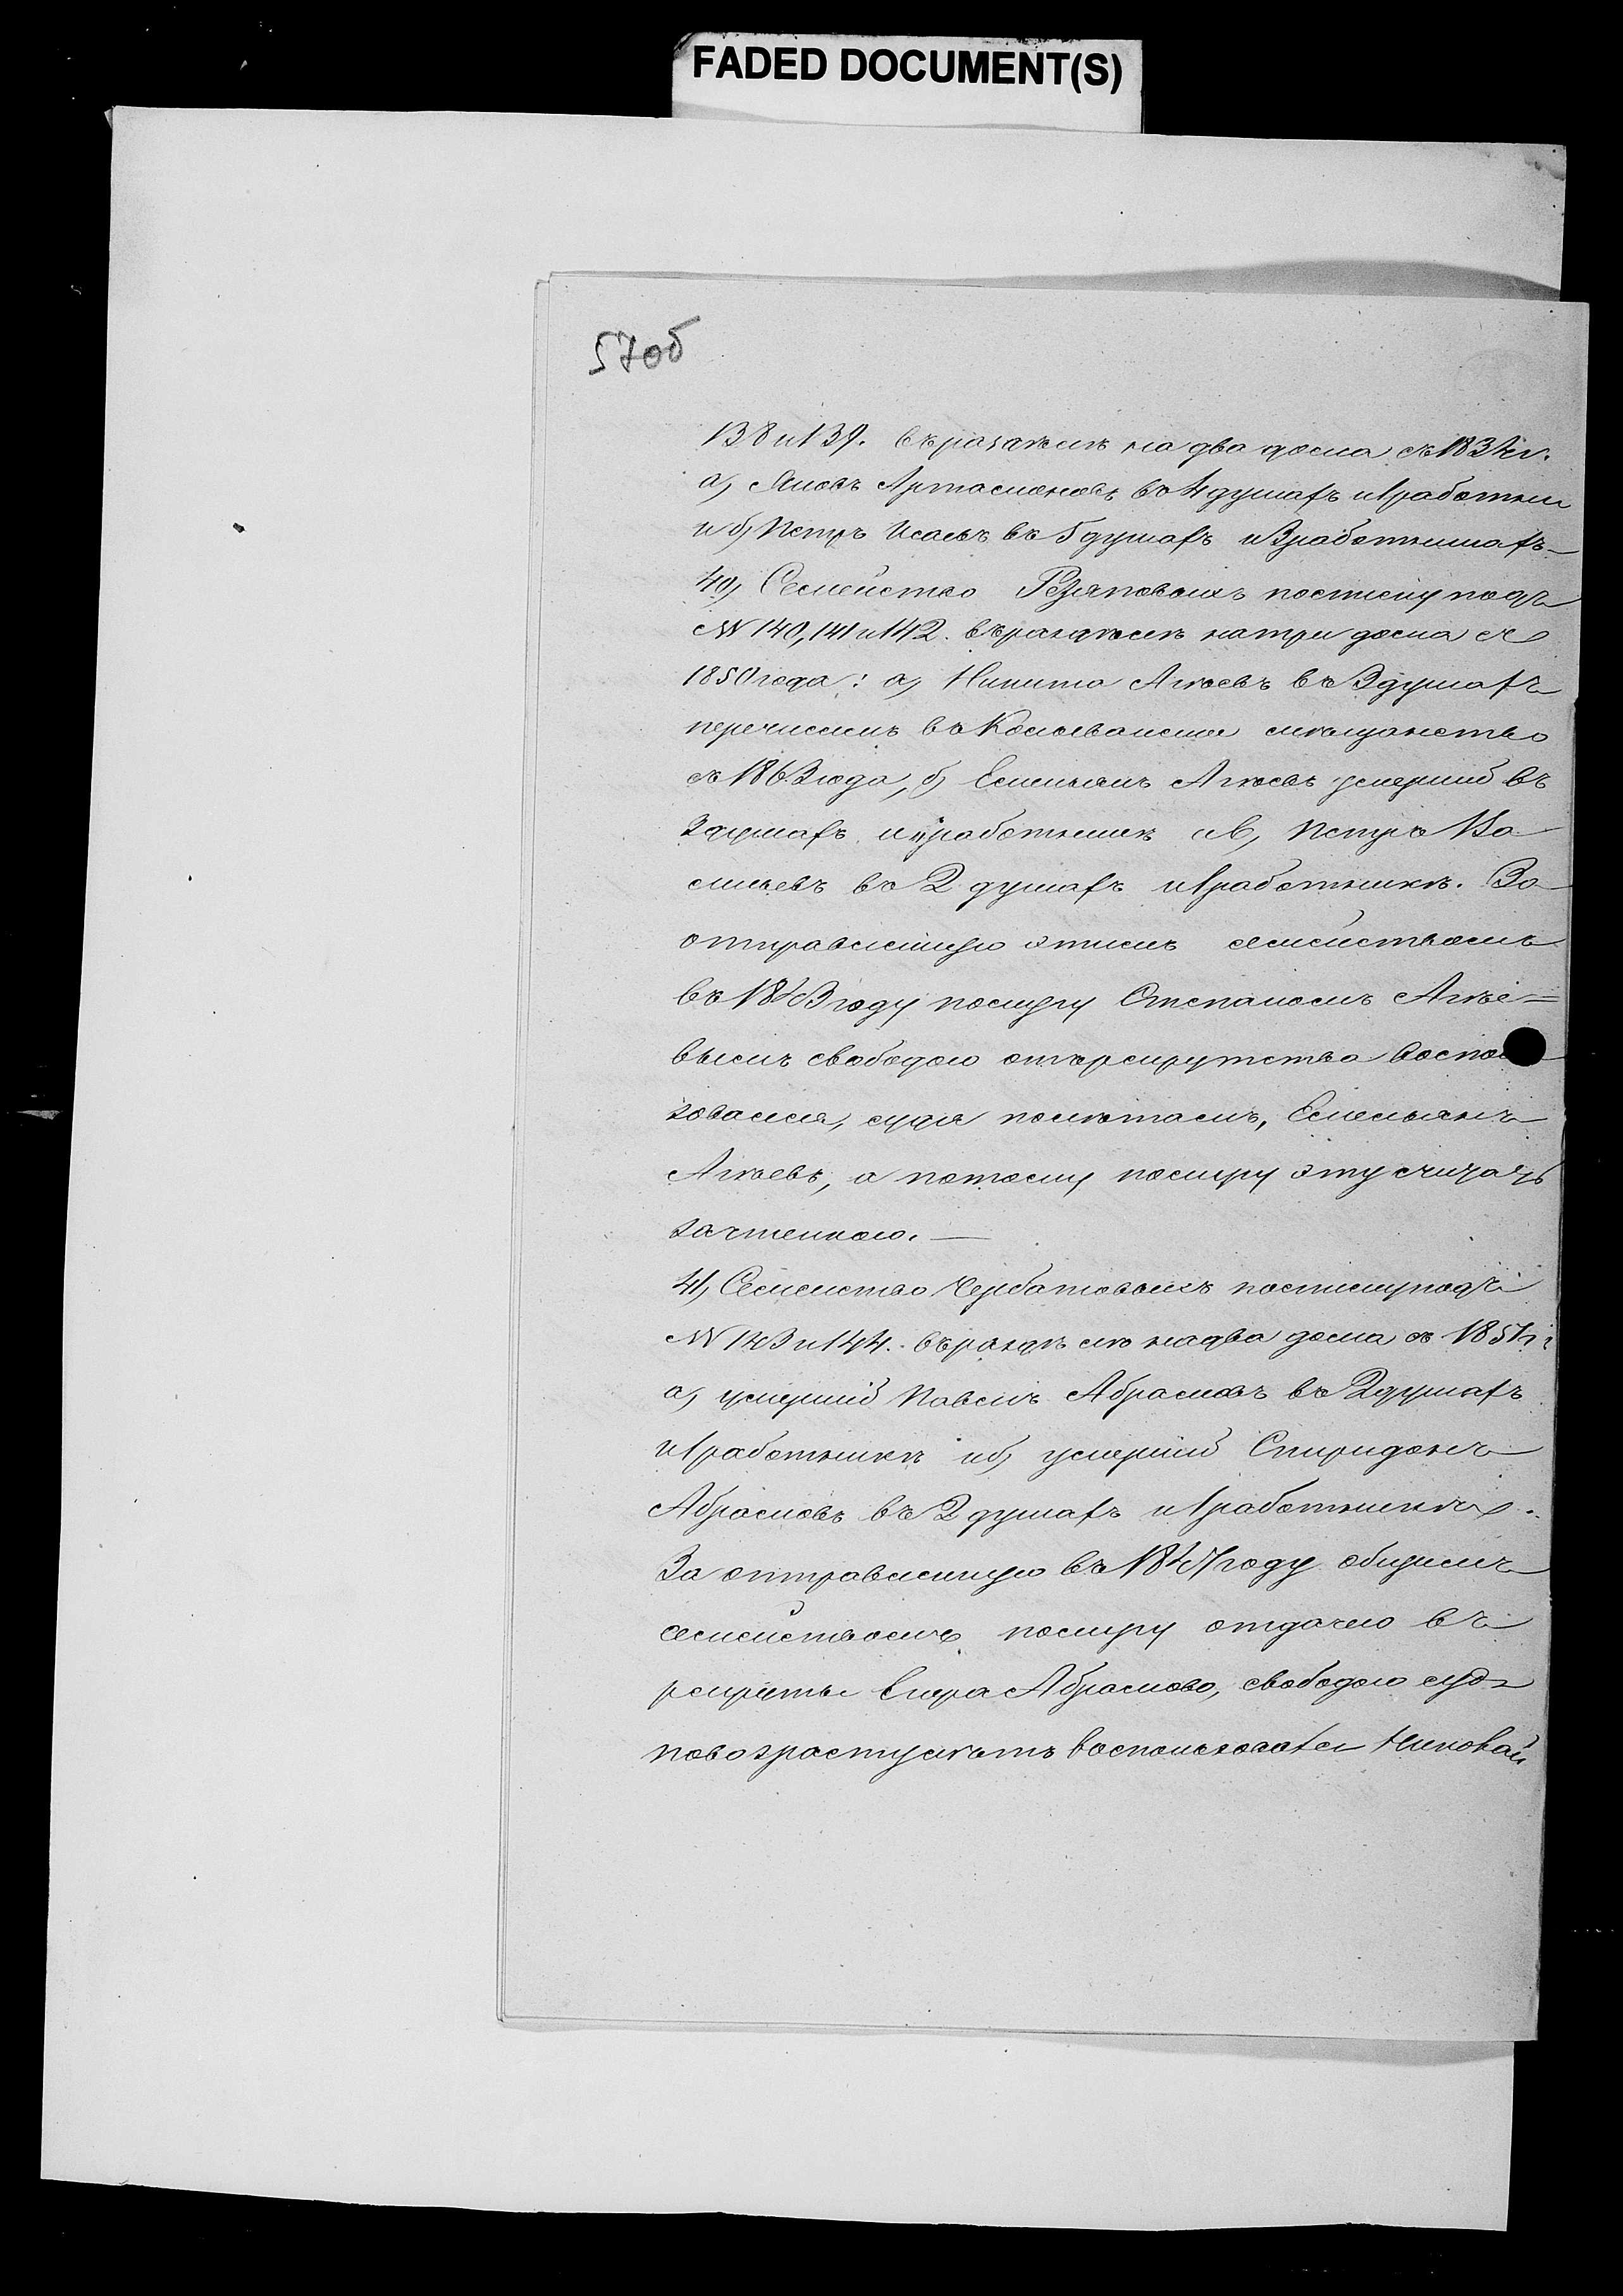 FADED DOCUMENT(S)
57об
138 и 139. въ раздѣлѣ на два дома съ 1834 г.
а, Яковъ Артамоновъ въ 4 душахъ и 1 работни
и б, Петръ Исаевъ въ 5 душахъ и 3 работникахъ
40, Семейство Резяповыхъ по списку подъ
№№ 140, 141 и 142. въ раздѣлѣ на три дома съ
1850 года: а, Никита Агѣевъ въ 3 душахъ
перечисленъ въ Колыванское мѣщанство
съ 1863 года, б, Емельянъ Агѣевъ умершій въ
3 душахъ и работникъ и в, Петръ Ва
сильевъ въ 2 душахъ и 1 работникъ. За
отправленную этимъ семействомъ
въ 1843 году послугу Степаномъ Агѣе=
вымъ свободою отъ рекрутства воспол
зовался, судя по лѣтамъ, Емельянъ
Агѣевъ, а потому послугу эту считать
зачтенною. —
41, Семейство Чербатовыхъ по списку подъ
№№ 143 и 144. въ раздѣлѣ на два дома съ 1857 г
а, умершій Павелъ Абрамовъ въ 2 душахъ
и 1 работникъ и б, умершій Спиридонъ
Абрамовъ въ 2 душахъ и 1 работникъ.
За отправленную въ 1847 году общимъ
семействомъ послугу отдачею въ
рекруты Абрамова, свободою судя
по возрасту лѣтъ воспользовался Николай